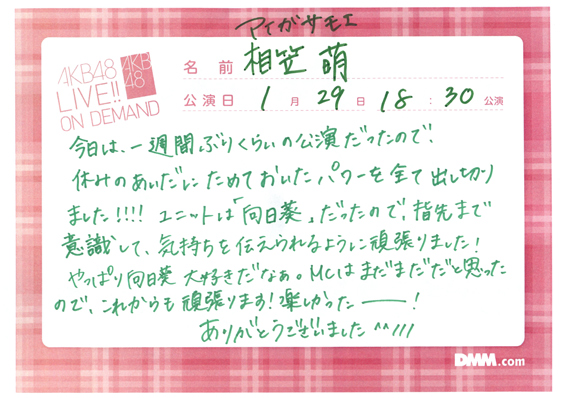 アイガサモエ
AKB48
LIVE!!
ON DEMAND
AKB
48
名前 相笠 萌
公演日 1月29日 18:30公演
今日は、一週間ぶりくらいの公演だったので、
休みのあいだにためておいたパワーを全て出し切り
ました!!!! ユニットは「向日葵」だったので、指先まで
意識して、気持ちを伝えられるように頑張りました!
やっぱり向日葵 大好きだなぁ。MCはまだまだだと思った
ので、これからも頑張ります!楽しかったーー!
ありがとうございました ^^///
DMM.com